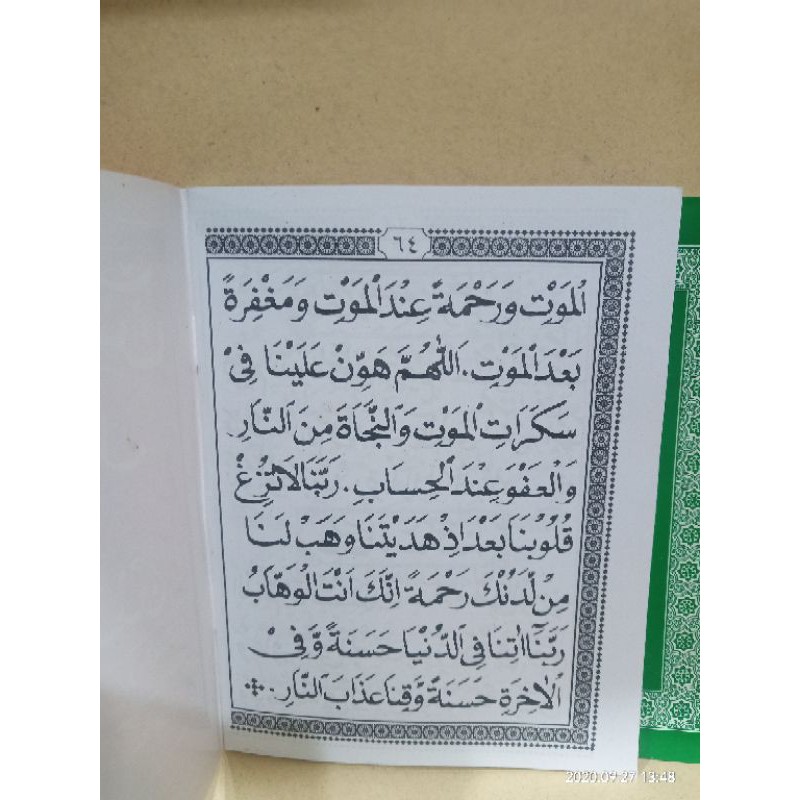 ٦٤
الْمَوْتِ وَرَحْمَةً عِنْدَ الْمَوْتِ وَمَغْفِرَةً
بَعْدَ الْمَوْتِ. اَللّٰهُمَّ هَوِّنْ عَلَيْنَا فِيْ
سَكَرَاتِ الْمَوْتِ وَالنَّجَاةَ مِنَ النَّارِ
وَالْعَفْوَ عِنْدَ الْحِسَابِ. رَبَّنَا لَا تُزِغْ
قُلُوْبَنَا بَعْدَ اِذْ هَدَيْتَنَا وَهَبْ لَنَا
مِنْ لَّدُنْكَ رَحْمَةً اِنَّكَ اَنْتَ الْوَهَّابُ
رَبَّنَآ اٰتِنَا فِى الدُّنْيَا حَسَنَةً وَّفِى
الْاٰخِرَةِ حَسَنَةً وَّقِنَا عَذَابَ النَّارِ.
2020.09.27 13:48